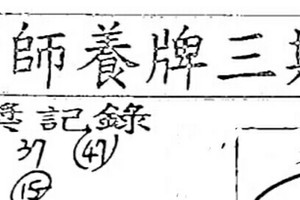 師養牌三
獎記錄
37 47
15